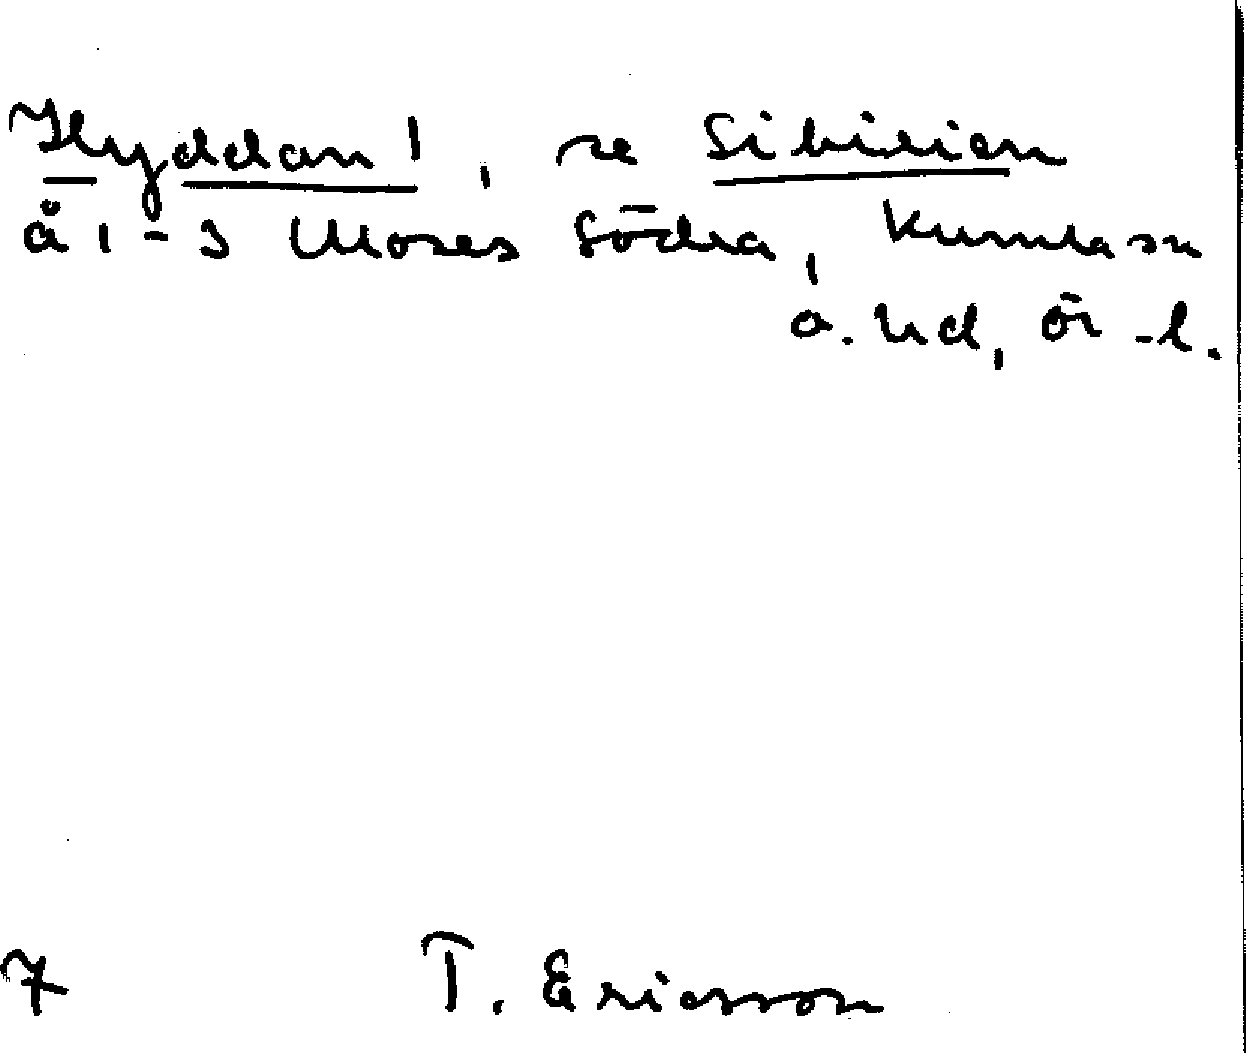 Hyddan 1, se Sibirien
å 1-3 Moses Södra, Kumla sn
Ö. Ud, Ör-l.
7 T. Ericsson